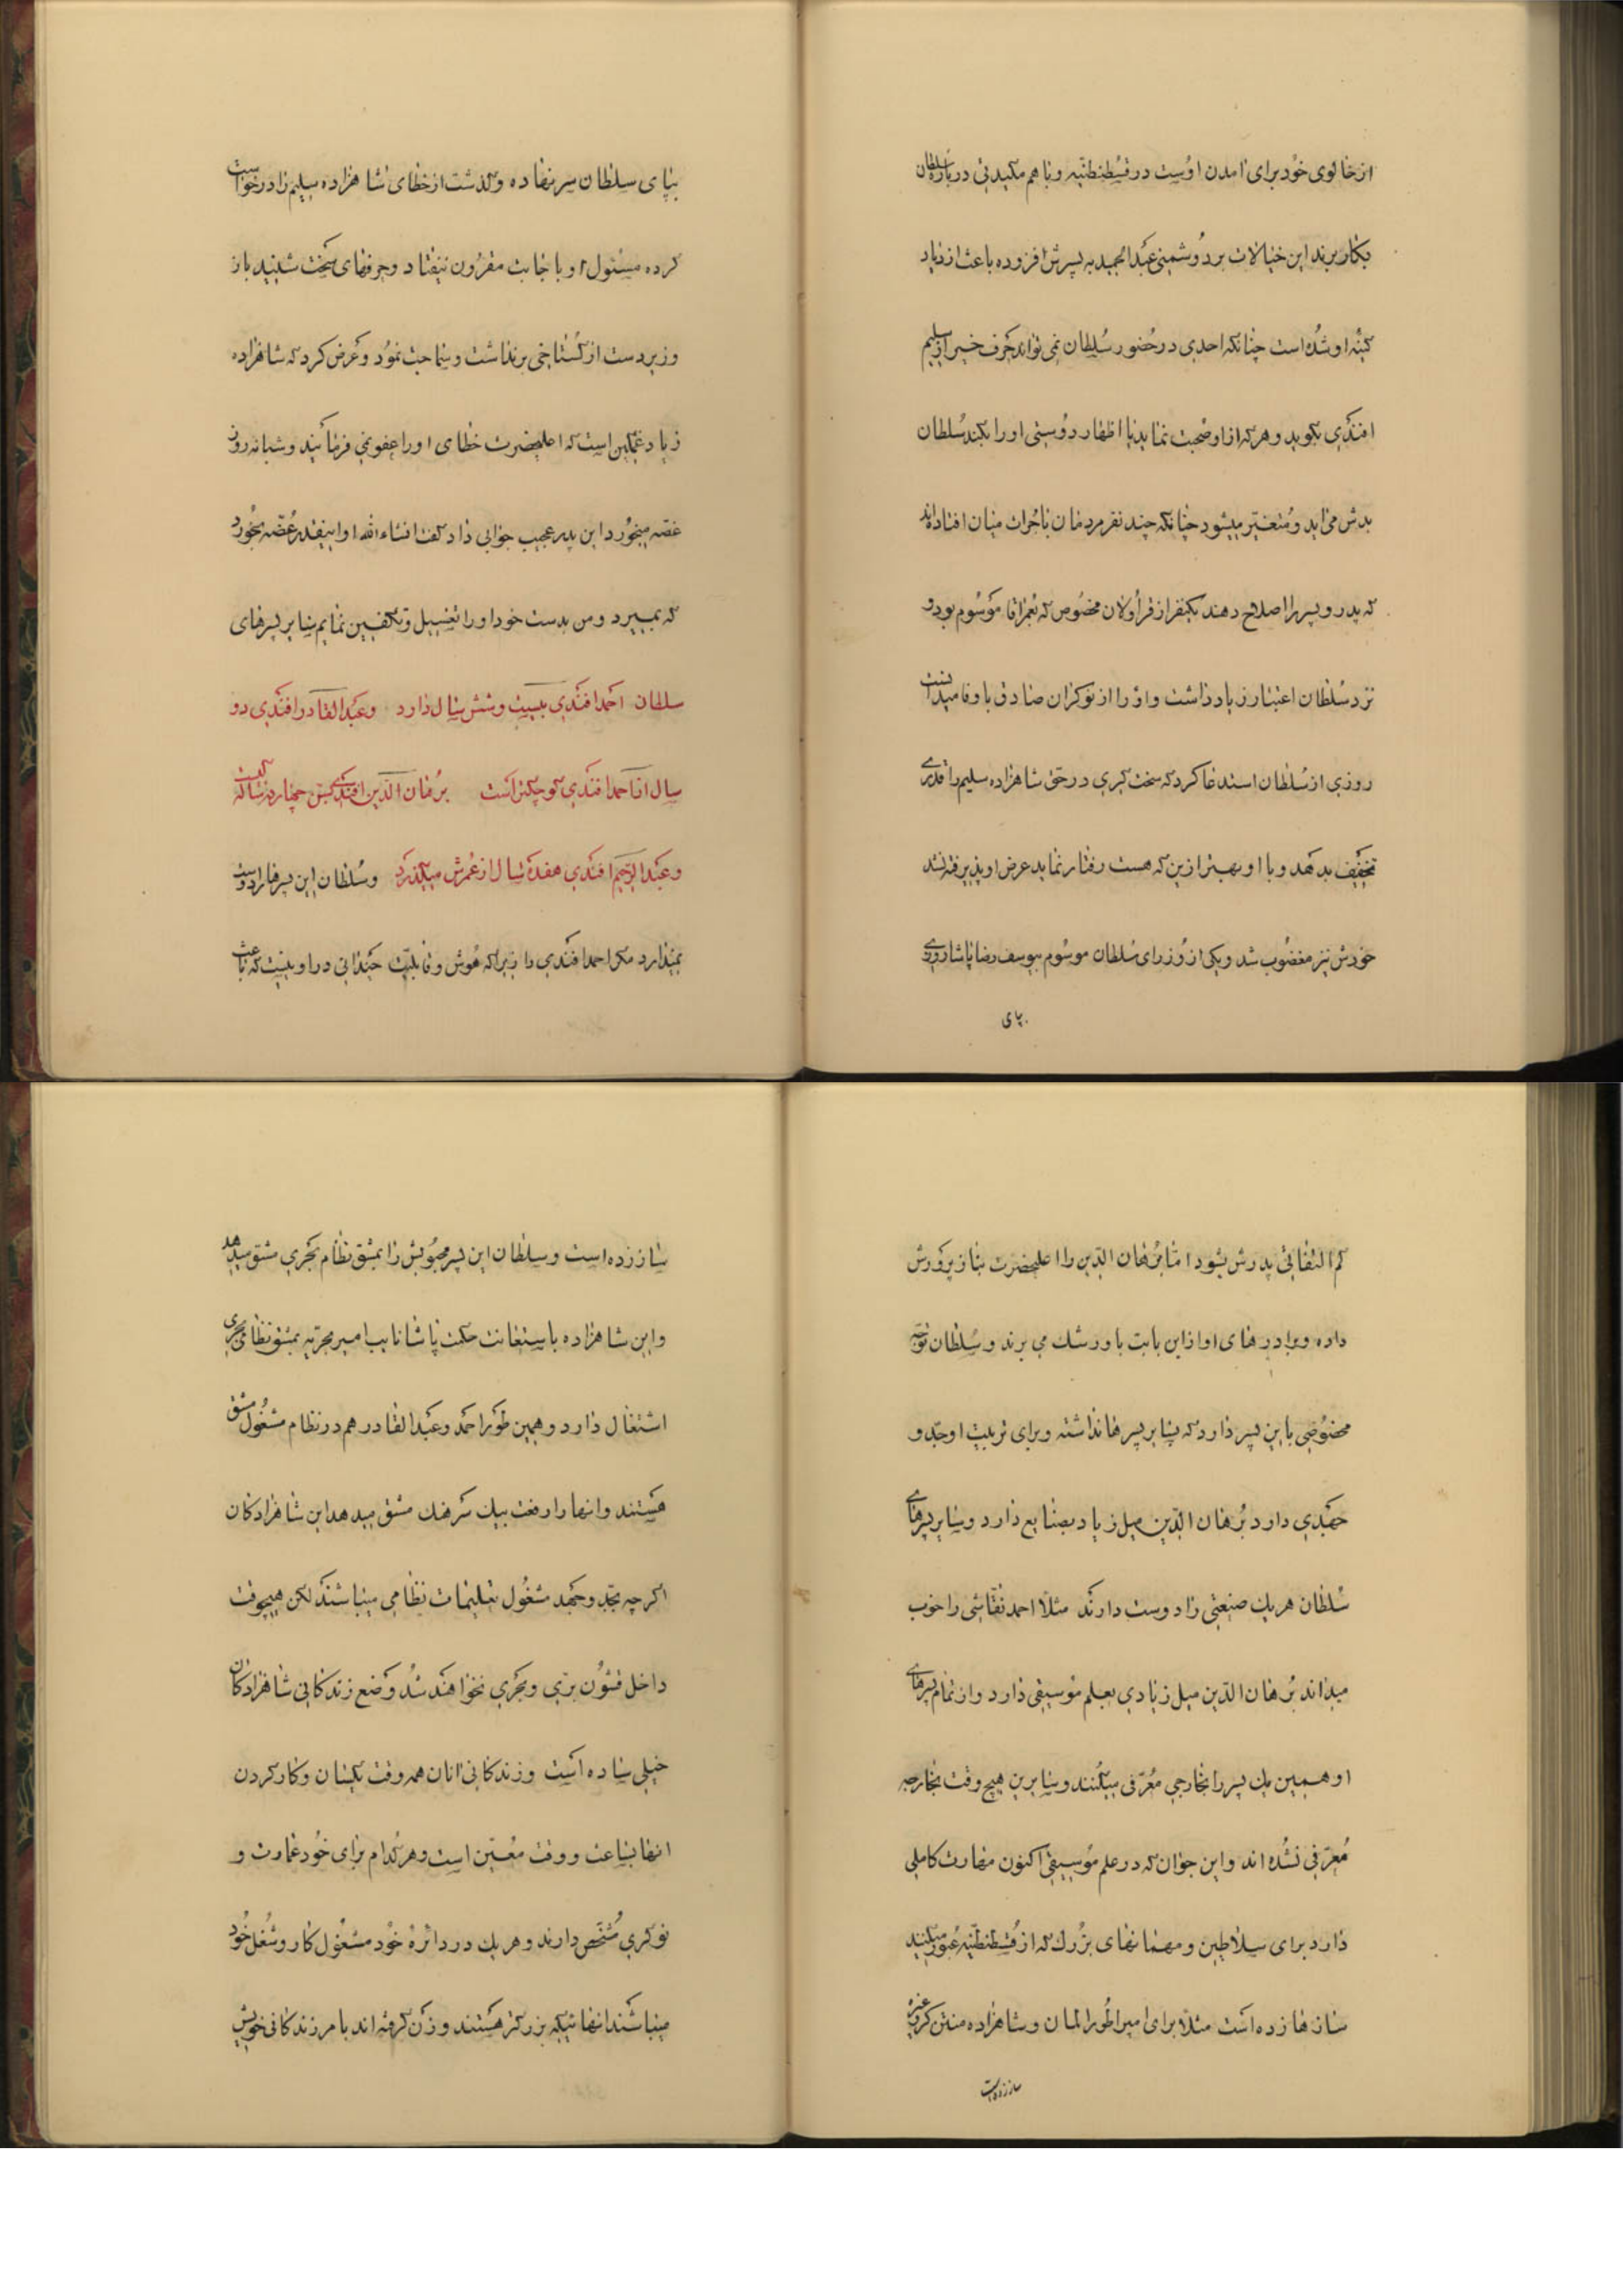 از خالوی خود برای آمدن اوست در قسطنطنیه و با هم مکیدتی درباره سلطان
بکار برند این خیالات بر دشمنی عبدالحمید به پسرش افزوده باعث ازدیاد
کینه او شده است چنانکه احدی در حضور سلطان نمی تواند حرف خیر از سلیم
افندی بگوید و هر که از او صحبت نماید یا اظهار دوستی او را بکند سلطان
بدش می آید و متغیر میشود چنانکه چند نفر مردمان با جرات میان افتاده اند
که پدر و پسر را اصلاح دهند یکنفر از قراولان مخصوص که بعمر اقا موسوم بود و
نزد سلطان اعتبار زیاد داشت و او را از نوکران صادق با وفا میدانست
روزی از سلطان استدعا کرد که سخت گیری در حق شاهزاده سلیم را قدری
تخفیف بدهد و با او بهتر ازین که هست رفتار نماید عرض او پذیرفته نشد
خودش نیز مغضوب شد و یکی از وزرای سلطان موسوم بیوسف رضا پاشا روزی
بپای
بپای سلطان سر نهاده و گذشت از خطای شاهزاده سلیم را درخواست
کرده مسئول او با جابت مقرون نیفتاد و حرفهای سخت شنید باز
وزیر دست از گستاخی برنداشت و سماجت نمود و عرض کرد که شاهزاده
زیاد غمگین است که اعلیحضرت خطای او را عفو نمی فرمائید و شبانه روز
غصه میخورد این پدر عجیب جوابی داد گفت انشاءالله او اینقدر غصه بخورد
که بمیرد و من بدست خود او را تغسیل و تکفین نمایم سایر پسرهای
سلطان احمد افندی بیست و شش سال دارد و عبدالقادر افندی دو
سال از احمد افندی کوچکتر است برهان الدین افندی سنش چهارده سالکیست
و عبدالرحیم افندی هفده سال از عمرش میگذرد و سلطان این پسرها را دوست
میدارد مگر احمد افندی را زیرا که هوش و قابلیت چندانی در او نیست که باعث
کم التفاتی پدرش بشود اما برهان الدین را اعلیحضرت بناز پرورش
داده و برادرهای او ازاین بابت باو رشک می برند و سلطان توجه
مخصوصی باین پسر دارد که بسایر پسرها نداشته و برای تربیت او جد و
جهدی دارد برهان الدین میل زیاد بصنایع دارد و سایر پسرهای
سلطان هریک صنعتی را دوست دارند مثلاً احمد نقاشی را خوب
میداند برهان الدین میل زیادی بعلم موسیقی دارد و از تمام پسرهای
او همین یک پسر را بخارجی معرفی میکنند و سایرین هیچ وقت بخارجه
معرفی نشده اند و این جوان که در علم موسیقی اکنون مهارت کاملی
دارد برای سلاطین و مهمانهای بزرک که از قسطنطنیه عبور میکنند
سازها زده است مثلاً برای امپراطور المان و شاهزاده منتن گرو غیره
ساز زده است
ساز زده است و سلطان این پسر محبوبش را بمشق نظام بحری مشق میدهد
و این شاهزاده باستعانت حکمت پاشا نایب امیر بحریه بمشق نظامی بحری
اشتغال دارد و همین طور احمد و عبدالقادر هم در نظام مشغول مشق
هستند و انها را رفعت بیک سرهنک مشق میدهد این شاهزادکان
اگر چه بجد و جهد مشغول تعلیمات نظامی میباشند لکن هیچوقت
داخل قشون بری و بحری نخواهند شد وضع زندگانی شاهزادکان
خیلی ساده است و زندکانی آنان همه وقت یکسان و کار کردن
انها بساعت و وقت معین است و هر کدام برای خود عمارت و
نوکری مشخص دارند و هر یک در دائرهٔ خود مشغول کار و شغل خود
میباشند انهائیکه بزرکتر هستند و زن گرفته اند با مر زندکانی خویش